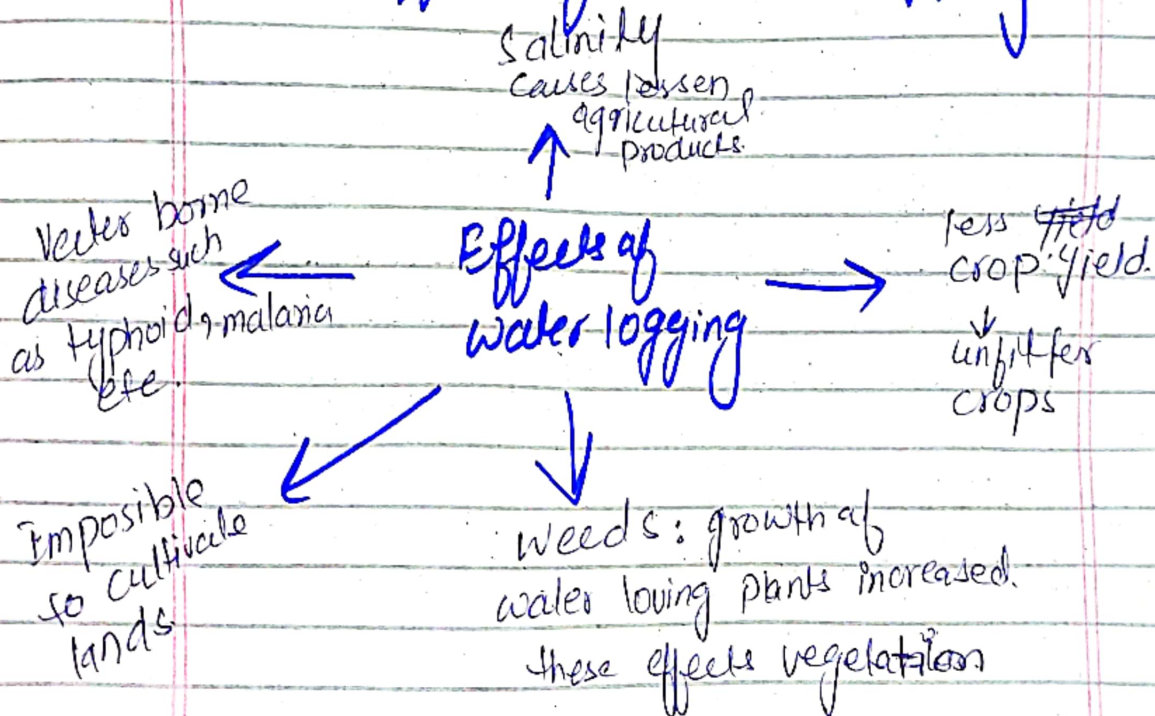 Salinity
causes lessen
agricutural
products.
Vecter borne
diseases such
as typhoid, malaria
etc.
Effects of
water logging
less yield
crop yield.
unfit for
crops
Imposible
to cultivate
lands
weeds: growth of
water loving plants increased.
these effects vegetation